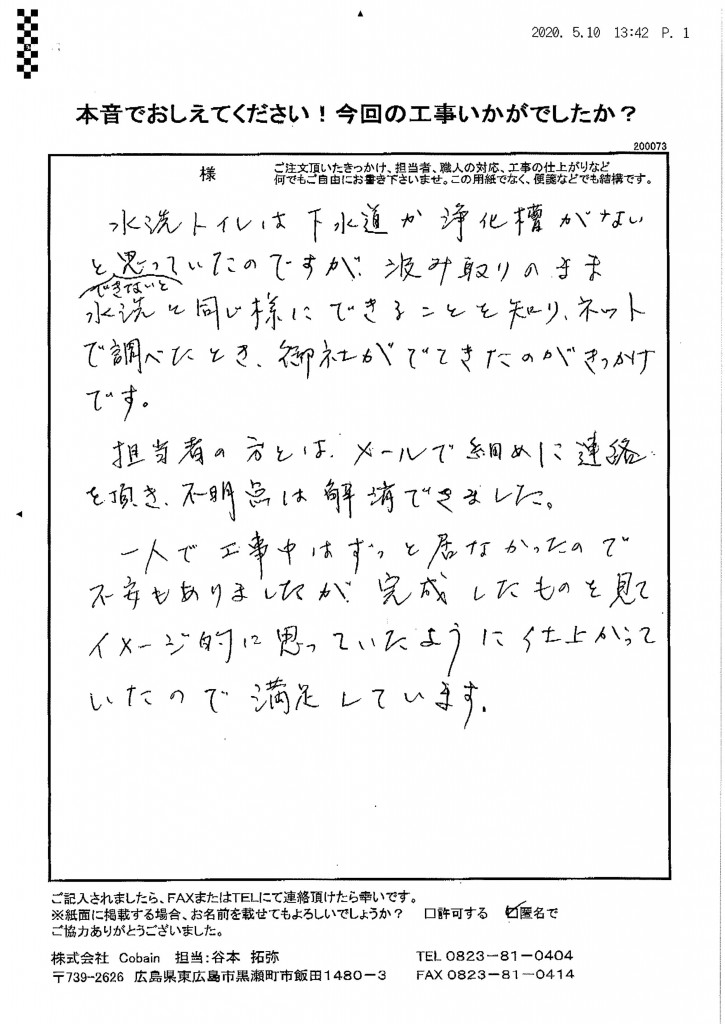 2020. 5.10 13:42 P. 1
本音でおしえてください！今回の工事いかがでしたか？
200073
様
ご注文頂いたきっかけ、担当者、職人の対応、工事の仕上がりなど
何でもご自由にお書き下さいませ。この用紙でなく、便箋などでも結構です。
水洗トイレは下水道か浄化槽がない
と思っていたのですが、汲み取りのまま
できないと
水洗と同じ様にできることを知り、ネット
で調べたとき、御社がでてきたのがきっかけ
です。
担当者の方とは、メールで細めに連絡
を頂き、不明点は解消できました。
一人で工事中はずっと居なかったので
不安もありましたが、完成したものを見て
イメージ的に思っていたように仕上がって
いたので満足しています。
ご記入されましたら、FAXまたはTELにて連絡頂けたら幸いです。
※紙面に掲載する場合、お名前を載せてもよろしいでしょうか？ □許可する ☑匿名で
ご協力ありがとうございました。
株式会社 Cobain 担当:谷本 拓弥 TEL 0823-81-0404
〒739-2626 広島県東広島市黒瀬町市飯田1480-3 FAX 0823-81-0414